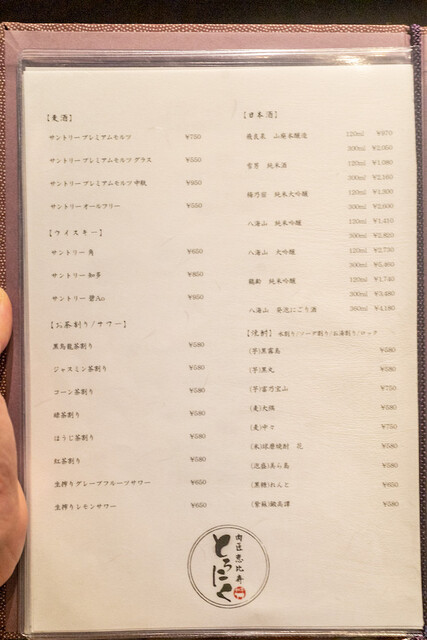 【麦酒】
サントリー プレミアムモルツ ¥750
サントリー プレミアムモルツ グラス ¥550
サントリー プレミアムモルツ 中瓶 ¥950
サントリー オールフリー ¥550
【ウイスキー】
サントリー 角 ¥650
サントリー 知多 ¥850
サントリー 碧Ao ¥950
【お茶割り/サワー】
黒烏龍茶割り ¥580
ジャスミン茶割り ¥580
コーン茶割り ¥580
緑茶割り ¥580
ほうじ茶割り ¥580
紅茶割り ¥580
生搾りグレープフルーツサワー ¥650
生搾りレモンサワー ¥650
【日本酒】
飛良泉 山廃本醸造 120ml ¥970
300ml ¥2,050
雪男 純米酒 120ml ¥1,080
300ml ¥2,160
120ml ¥1,300
純米大吟醸
300ml ¥2,600
八海山 純米吟醸 120ml ¥1,410
300ml ¥2,820
八海山 大吟醸 120ml ¥2,730
300ml ¥5,460
龍勢 純米吟醸 120ml ¥1,740
300ml ¥3,480
八海山 発泡にごり酒 360ml ¥4,180
【焼酎】 水割り/ソーダ割り/お湯割り/ロック
(芋)黒霧島 ¥580
(芋)黒丸 ¥580
(芋)富乃宝山 ¥750
(麦)大隅 ¥580
(麦)中々 ¥750
(米)球磨焼酎 花 ¥580
(泡盛)美ら島 ¥580
(黒糖)れんと ¥650
(紫蘇)鍛高譚 ¥580
肉匠恵比寿
とろにく